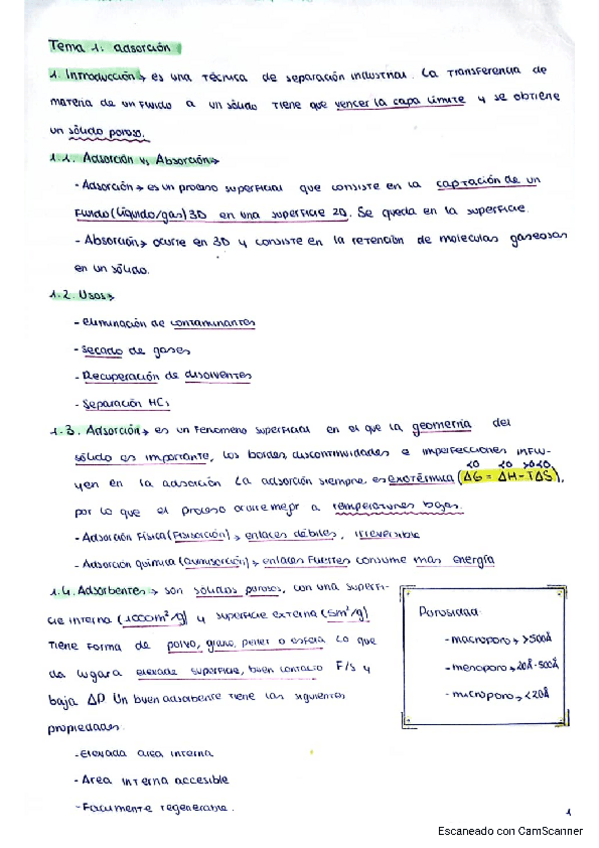 Tema 1: adsorción
1. Introducción → es una técnica de separación industrial. La transferencia de
materia de un fluido a un sólido tiene que vencer la capa límite y se obtiene
un sólido poroso.
1.1. Adsorción vs Absorción →
- Adsorción → es un proceso superficial que consiste en la captación de un
fluido (líquido/gas) 3D en una superficie 2D. Se queda en la superficie.
- Absorción → ocurre en 3D y consiste en la retención de moleculas gaseosas
en un sólido.
1.2. Usos →
- eliminación de contaminantes
- secado de gases
- Recuperación de disolventes
- Separación HCs
1.3. Adsorción → es un fenomeno superficial en el que la geometria del
sólido es importante, los bordes, discontinuidades e imperfecciones influ-
yen en la adsorción. La adsorción siempre es exotérmica (ΔG = ΔH - TΔS),
<0 <0 >0 <0
por lo que el proceso ocurre mejor a temperaturas bajas.
- Adsorción Física (Fisisorción) → enlaces débiles, irreversible
- Adsorción química (quimisorción) → enlaces fuertes consume más energía
1.4. Adsorbentes → son sólidos porosos, con una superfi-
cie interna (1000m²/g) y superficie externa (5m²/g)
Tiene forma de polvo, grano, pellet o esfera. Lo que
da lugar a elevada superficie, buen contacto F/S y
baja ΔP. Un buen adsorbente tiene las siguientes
propiedades:
- Elevada area interna
- Area interna accesible
- Facilmente regenerable.
Porosidad
- macroporo → >500Å
- mesoporo → 20Å-500Å
- microporo → <20Å
1
Escaneado con CamScanner